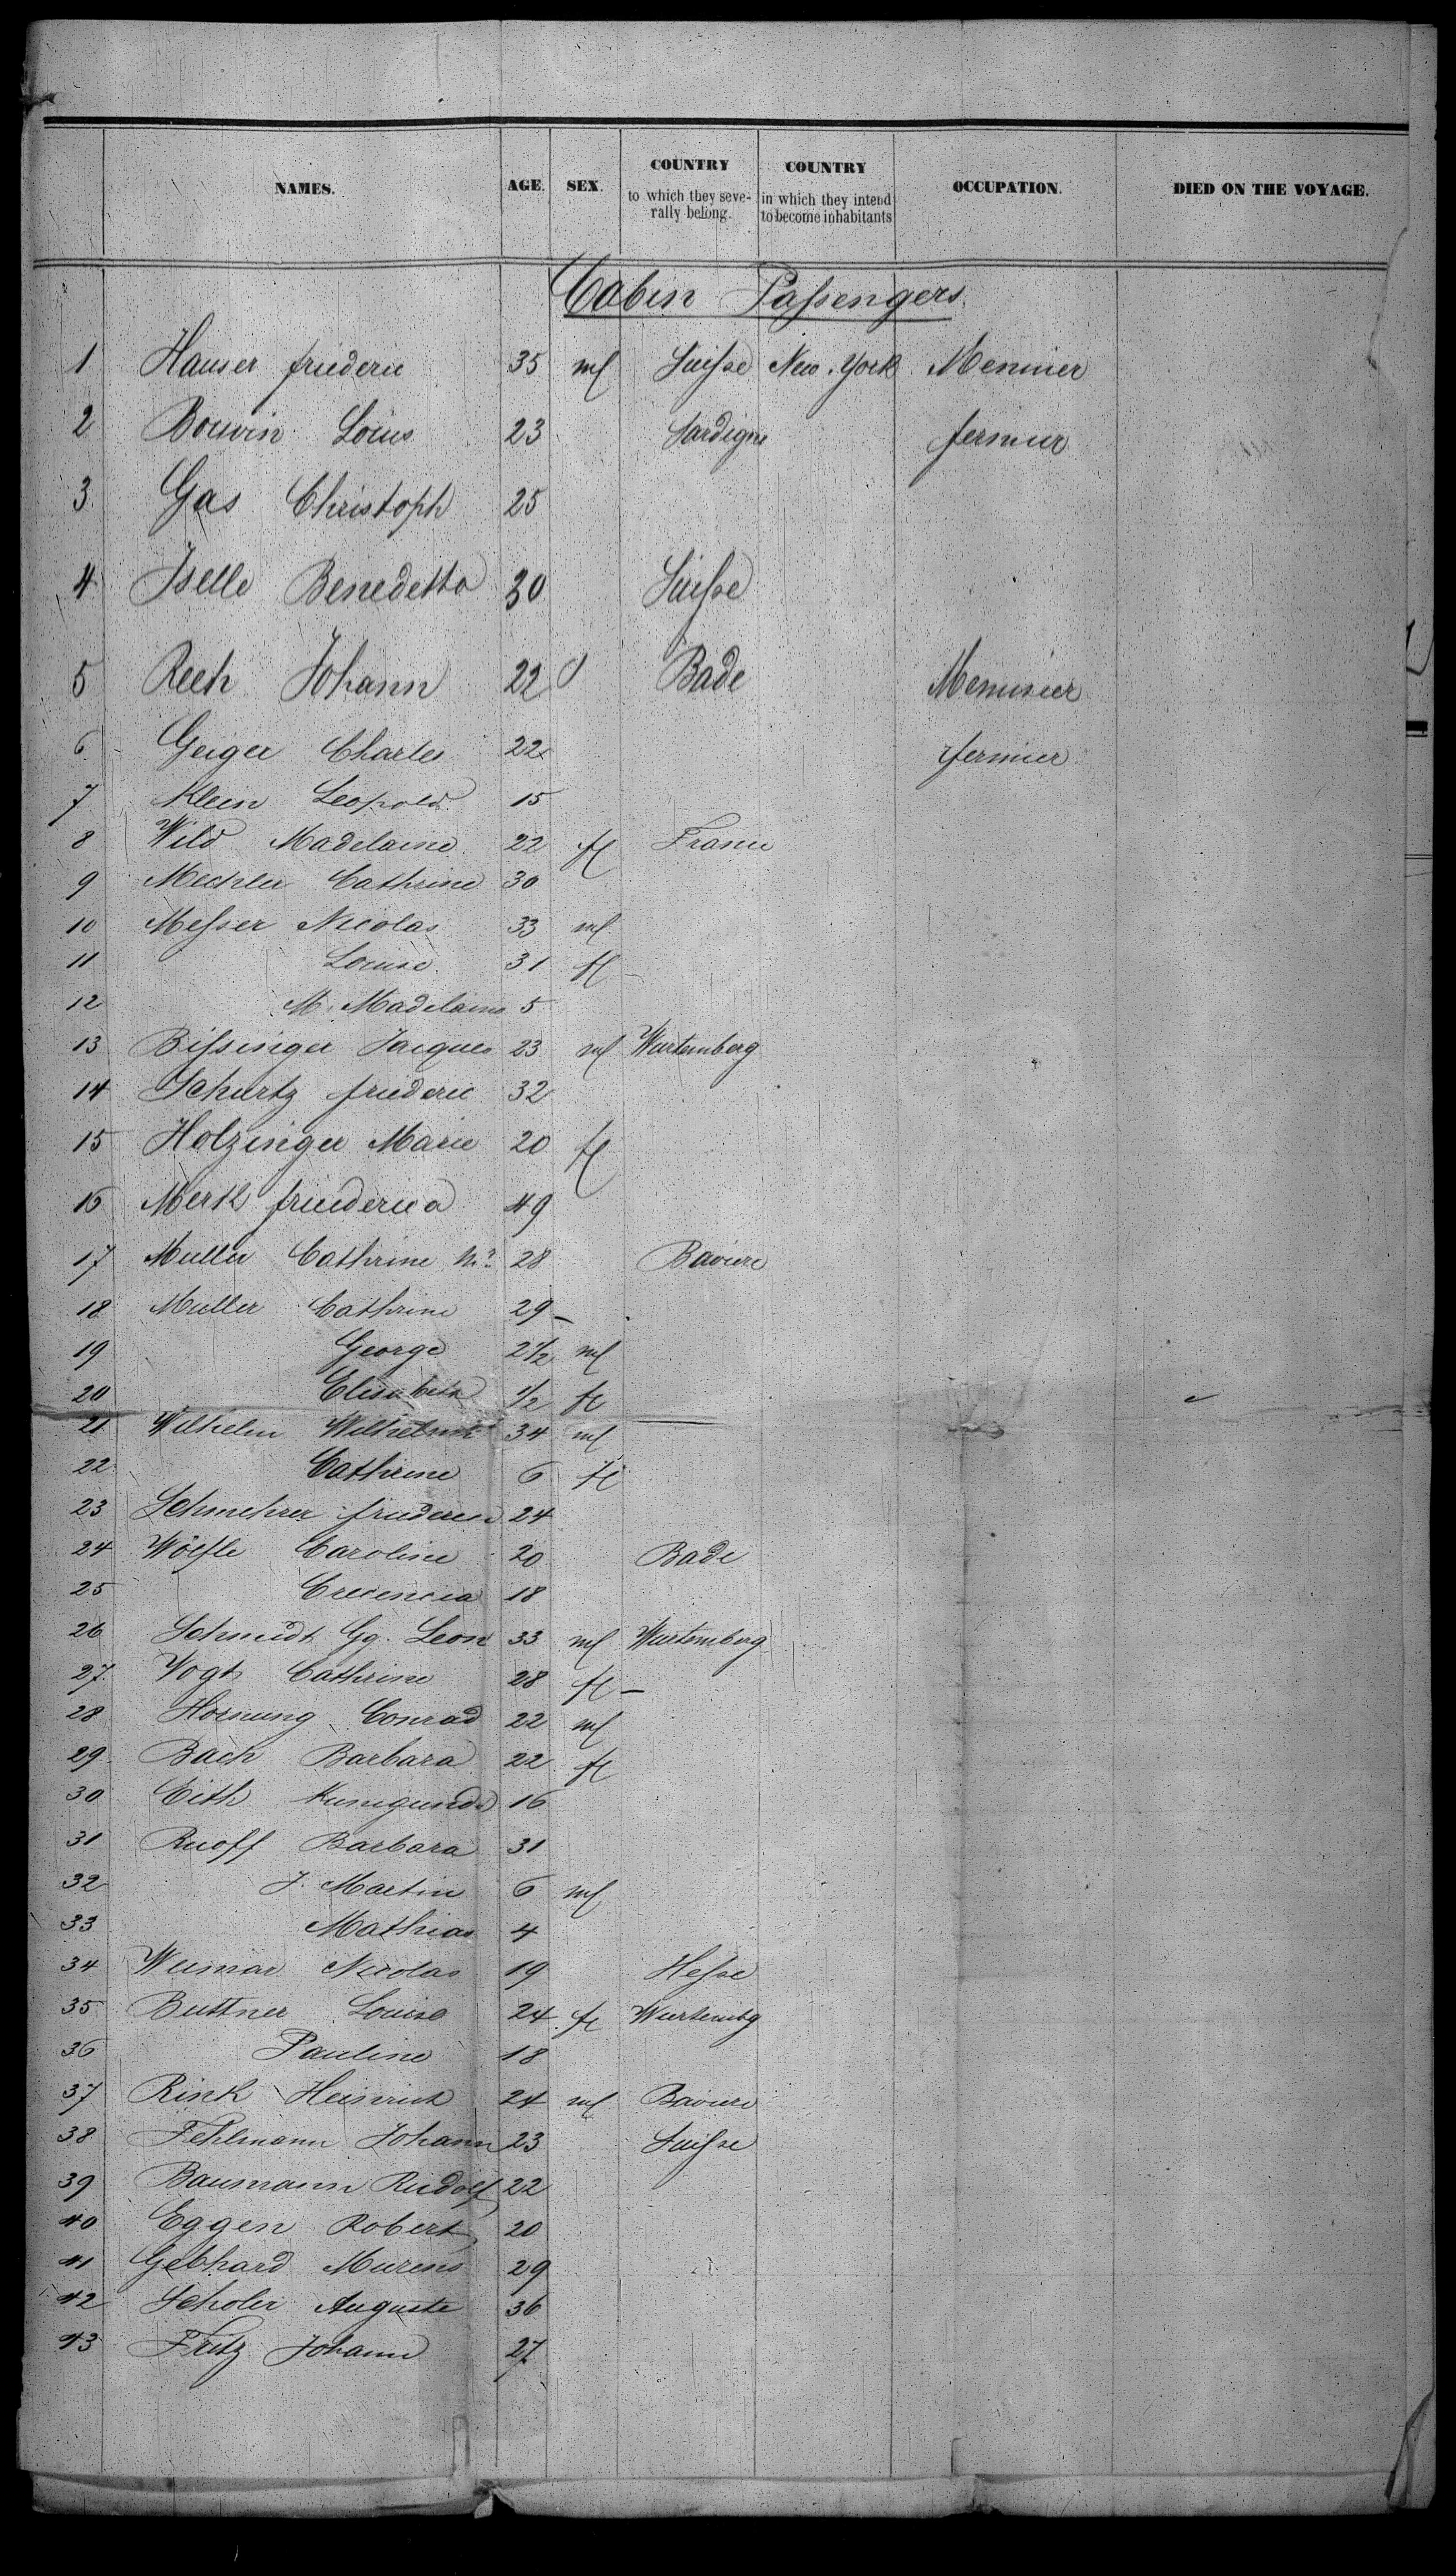 NAMES. AGE. SEX. COUNTRY to which they seve-rally belong. COUNTRY in which they intend to become inhabitants OCCUPATION. DIED ON THE VOYAGE.
Cabin Passengers
1 Hauser friederic 35 ml Suisse New-York Menuier
2 Bouvin Louis 23 Sardigne fermier
3 Gas Christoph 25
4 Iselle Benedetto 30 Suisse
5 Rech Johann 22 Bade Menusier
6 Geiger Charles 22 fermier
7 Klein Leopold 15
8 Wild Madelaine 22 fl France
9 Mechler Cathrine 30
10 Messer Nicolas 33 ml
11 Louise 31 fl
12 M. Madelaine 5
13 Bissinger Jacques 23 ml Wurtemberg
14 Schurtz friederic 32
15 Holzinger Marie 20 fl
16 Merk friederica 49
17 Muller Cathrine 28 Baviere
18 Muller Cathrine 29
19 George 2 1/2 ml
20 Elisabeth 1/2 fl
21 Wilhelm 34 ml
22 Cathrine 6 fl
23 Schmehrer 24
24 Wölfle Caroline 20 Bade
25 Crecencia 18
26 Schmidt Gg. Leon 33 ml Wurtemberg
27 Vogt Cathrine 28 fl
28 Hornung Conrad 22 ml
29 Bach Barbara 22 fl
30 Eith Kunigunde 16
31 Ruoff Barbara 31
32 J. Martin 6 ml
33 Mathias 4
34 Weimar Nicolas 19 Hesse
35 Buttner Louise 24 fl Wurtembg
36 Pauline 18
37 Rink Heinrich 24 ml Baviere
38 Fehlmann Johann 23 Suisse
39 Baumann Rudolf 22
40 Eggen Robert 20
41 Gebhard 29
42 Scholer Auguste 36
43 Fritz Johann 27